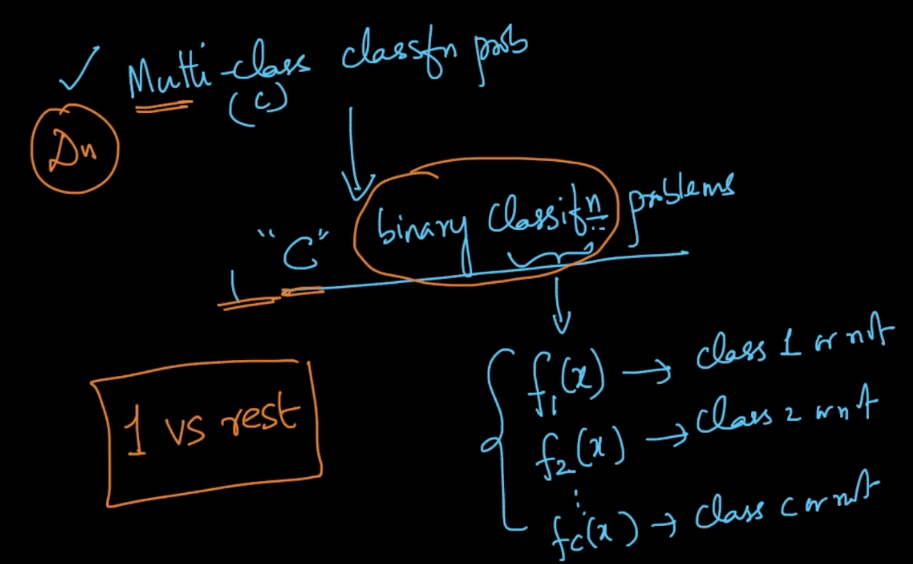 ✓ Multi-class classfn prob
(c)
Dn
1 "C" binary classifn problems
f1(x) → class 1 or not
1 vs rest
f2(x) → class 2 or not
⋮
fc(x) → class c or not